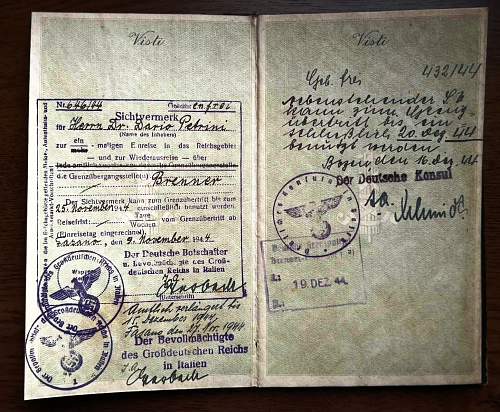 Visti
Nr. 646/44
Sichtvermerk
für Herrn Dr. Dario Petrini
(Name des Inhabers)
zur ein maligen Einreise in das Reichsgebiet
— und zur Wiederausreise — über
die Grenzübergangsstelle(n)
Brenner
Der Sichtvermerk kann zum Grenzübertritt bis zum
25. November 1944 einschließlich benutzt werden.
Reisefrist: Tage Wochen vom Grenzübertritt ab
(Einreisetag eingerechnet)
Fasano, den 9. November 1944
Der Deutsche Botschafter
u. Bevollmächtigte des Großdeutschen Reichs in Italien
(Unterschrift)
Amtlich verlängert bis
15. Dezember 1944
Fasano den 27. Nov. 1944
Der Bevollmächtigte
des Großdeutschen Reichs
in Italien
Visti
432/44
Geb. frei
Nebenstehender
kann zum Grenz-
übertritt bis ein-
schließlich 20. Dez. 44
benutzt werden
Bozen, den 16. Dez. 44
Der Deutsche Konsul
19. DEZ. 44